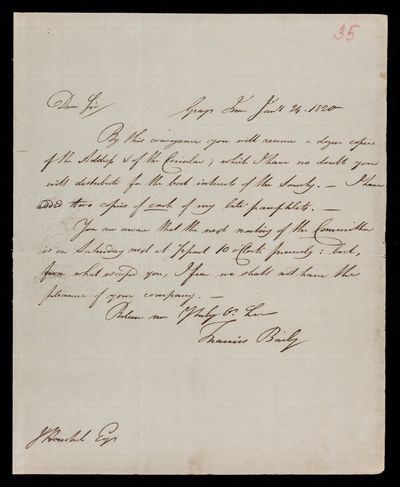 35
Dear Sir, Grays Inn Jany 24. 1820
By this conveyance you will receive a dozen copies
of the Address & of the Circular; which I have no doubt you
will distribute for the best interests of the Society. — I have
added two copies of each of my late pamphlets. —
You are aware that the next meeting of the Committee
is on Saturday next at ½ past 10 oClock precisely: but,
from what escaped you, I fear we shall not have the
pleasure of your company. —
Believe me Truly Yrs &c
Francis Baily
J Herschel Esqr